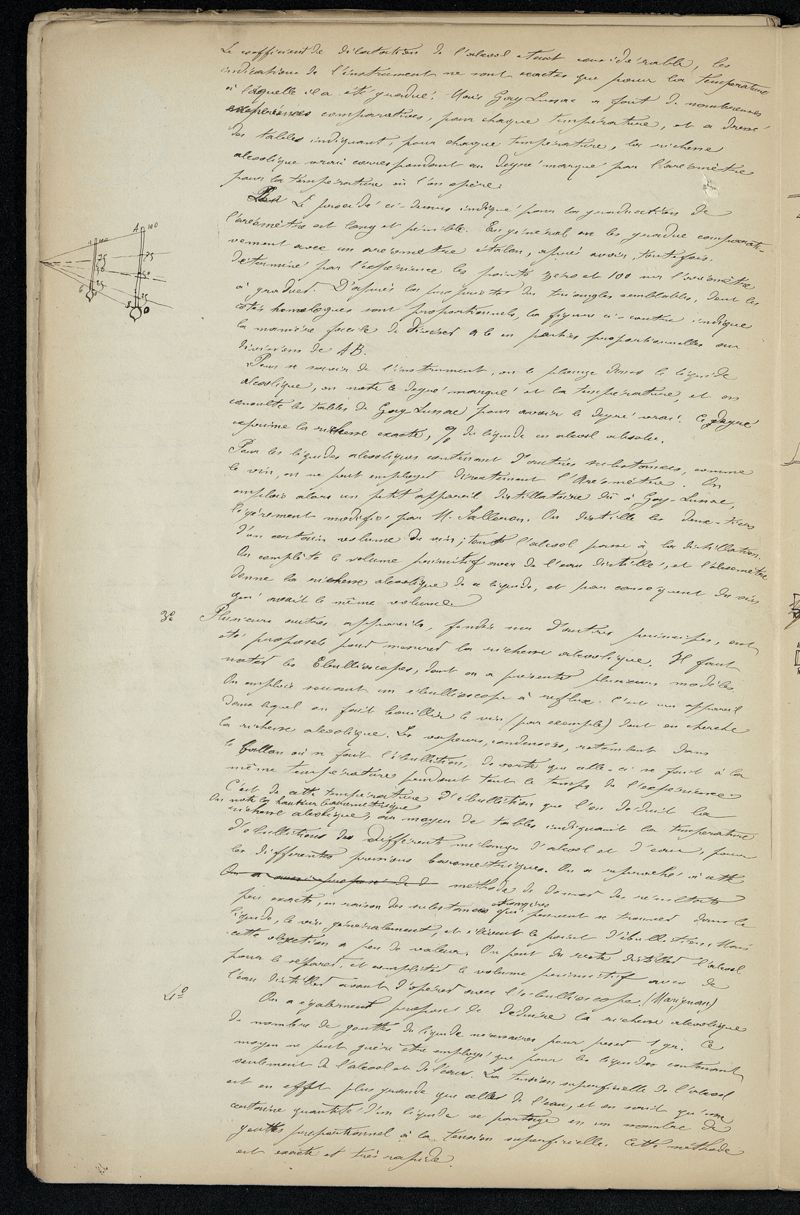 Le coefficient de dilatation de l'alcool étant considérable, les
indications de l'instrument ne sont exactes que pour la température
à laquelle il a été gradué. Mais Gay Lussac a fait de nombreuses
expériences comparatives, pour chaque température, et a dressé
des tables indiquant, pour chaque température, la richesse
alcoolique vraie correspondant au degré marqué par l'aréomètre
pour la température où l'on opère.
Le procédé ci-dessus indiqué pour la graduation de
l'aréomètre est long et pénible. En général, on les gradue comparati-
vement avec un aréomètre étalon, après avoir, toutefois,
déterminé par l'expérience les points zéro et 100 sur l'aréomètre
à graduer. D'après les propriétés des triangles semblables, dont les
côtés homologues sont proportionnels, la figure ci-contre indique
la manière facile de diviser ab en parties proportionnelles aux
divisions de AB.
A 100
100
75
75
50
50
25
25
B 0
Pour se servir de l'instrument, on le plonge dans le liquide
alcoolique, on note le degré marqué et la température, et on
consulte les tables de Gay Lussac pour avoir le degré vrai. Ce degré
exprime la richesse exacte, % du liquide en alcool absolu.
Pour les liquides alcooliques contenant d'autres substances, comme
le vin, on ne peut employer directement l'Aréomètre. On
emploie alors un petit appareil distillatoire dû à Gay-Lussac,
légèrement modifié par M. Salleron. On distille les deux-tiers
d'un certain volume de vin; tout l'alcool passe à la distillation.
On complète le volume primitif avec de l'eau distillée, et l'alcoomètre
donne la richesse alcoolique de ce liquide, et par conséquent du vin
qui avait le même volume.
3º Plusieurs autres appareils, fondés sur d'autres principes, ont
été proposés pour mesurer la richesse alcoolique. Il faut
noter les Ebullioscopes, dont on a présenté plusieurs modèles.
On emploie souvent un ébullioscope à reflux. C'est un appareil
dans lequel on fait bouillir le vin (par exemple) dont on cherche
la richesse alcoolique. Les vapeurs, condensées, retombent dans
le ballon où se fait l'ébullition, de sorte que celle-ci se fait à la
même température pendant tout le temps de l'expérience.
C'est de cette température d'ébullition que l'on déduit la
On note la hauteur barométrique
richesse alcoolique, au moyen de tables indiquant la température
d'ébullition des différents mélanges d'alcool et d'eau, pour
les différentes pressions barométriques. On a reproché à cette
On a aussi proposé de d méthode de donner des résultats
peu exacts, en raison des substances étrangères qui peuvent se trouver dans le
liquide, le vin généralement, et élèvent le point d'ébullition. Mais
cette objection a peu de valeur. On peut du reste distiller l'alcool
pour le séparer, et compléter le volume primitif avec de
l'eau distillée avant d'opérer avec l'ébullioscope. (Marignan)
4º On a également proposé de déduire la richesse alcoolique
du nombre de gouttes du liquide nécessaires pour peser 1 gr. Ce
moyen ne peut guère être employé que pour les liquides contenant
seulement de l'alcool et de l'eau. La tension superficielle de l'alcool
est en effet plus grande que celle de l'eau, et on sait qu'une
certaine quantité d'un liquide se partage en un nombre de
gouttes proportionnel à la tension superficielle. Cette méthode
est exacte et très rapide.